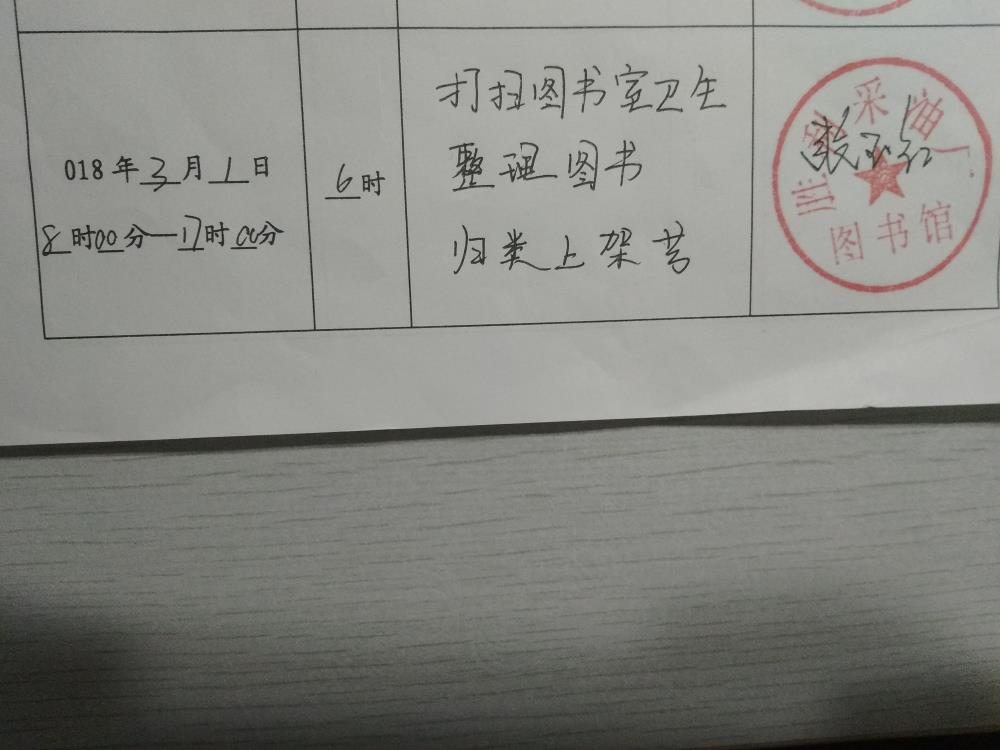 018年3月1日
8时00分—17时00分
6时
打扫图书室卫生
整理图书
归类上架等
采油厂
图书馆